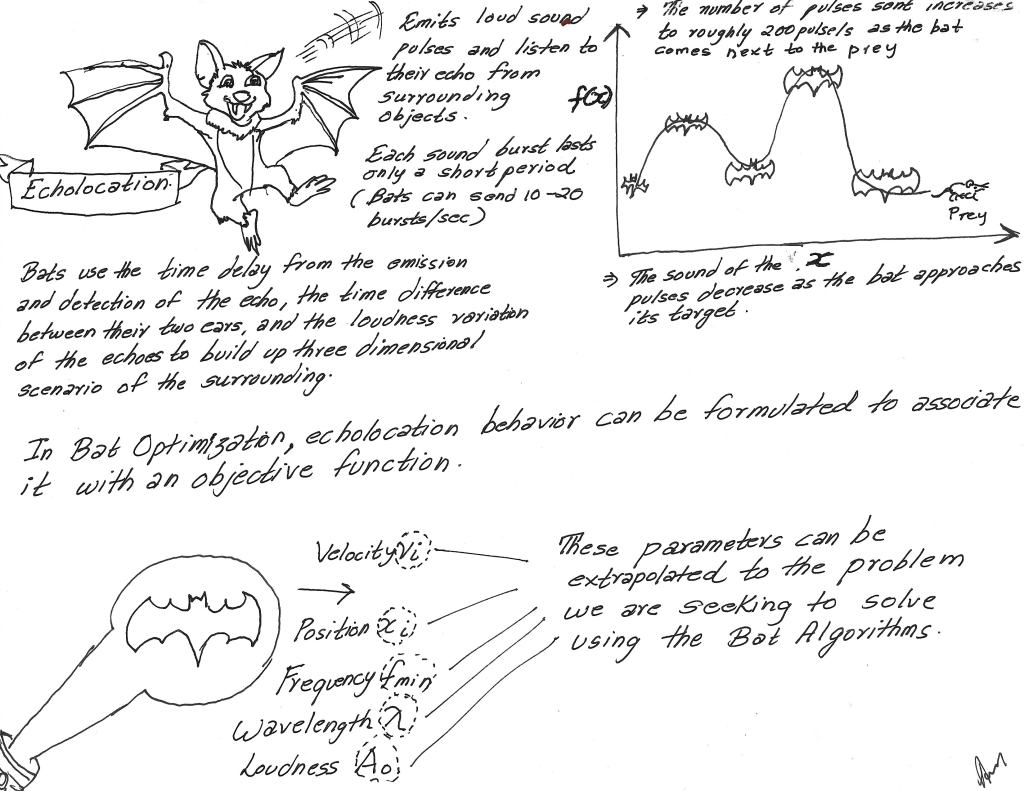 Emits loud sound
pulses and listen to
their echo from
surrounding
objects.
Each sound burst lasts
only a short period
(Bats can send 10-20
bursts/sec)
Echolocation
⇒ The number of pulses sent increases
to roughly 200 pulsels as the bat
comes next to the prey
f(x)
Prey
x
⇒ The sound of the
pulses decrease as the bat approaches
its target.
Bats use the time delay from the emission
and detection of the echo, the time difference
between their two ears, and the loudness variation
of the echoes to build up three dimensional
scenario of the surrounding.
In Bat Optimization, echolocation behavior can be formulated to associate
it with an objective function.
Velocity vi
Position xi
Frequency fmin
Wavelength λ
Loudness A0
These parameters can be
extrapolated to the problem
we are seeking to solve
using the Bat Algorithms.